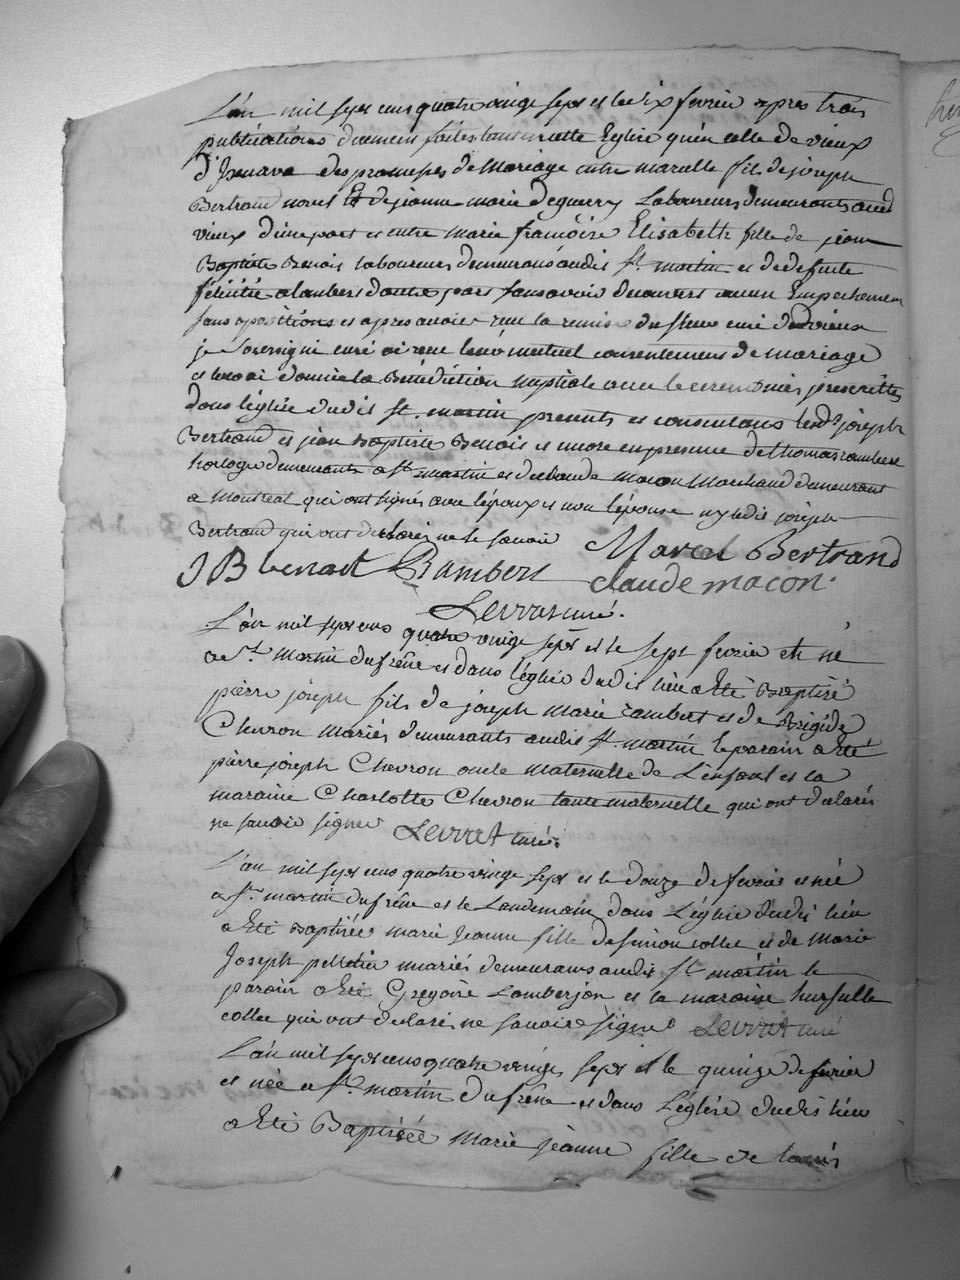 L'an mil sept cens quatre vingt sept et le dix fevrier apres trois
publications duement faites tans en cette Eglise qu'en celle de vieux
d'Izenave des promesses de Mariage entre marcelle fils de joseph
Bertrand novel Et de jeanne marie deguerry Laboureurs demeurants aud
vieux d'une part et entre marie francoise Elisabeth fille de jean
Baptiste Benoit laboureur demeurans audit st. martin et de defunte
félicitée alambert dautre part sans avoir decouvert aucun Empechement
sans opositions et apres avoir recu la remise du sieur curé dud vieux
je Soussigné curé ai recu leur mutuel consentement de mariage
et leur ai donné la Bénédiction nuptiale avec les ceremonies prescrittes
dans l'église dudit st. martin presents et consentans lesd. joseph
Bertrand et jean Baptiste Benoit et encore en presence de thomas rambert
horloger demeurants a st martin et de claude macon Marchand demeurant
a Montreal qui ont signés avec l'époux et non l'épouse ny ledit joseph
Bertrand qui ont declarés ne le savoir
Marcel Bertrand
J B benoit Rambert claude macon.
Levrat curé.
L'an mil sept cens quatre vingt sept et le sept fevrier est né
a st. martin du frêne et dans l'église dudit lieu a Eté Baptisé
pierre joseph fils de joseph marie rambert et de Brigide
Chevron mariés demeurants audit st. martin le parain a Eté
pierre joseph Chevron oncle maternelle de L'enfant et la
maraine Charlotte Chevron tante maternelle qui ont declarés
ne savoir signer Levrat curé.
L'an mil sept cens quatre vingt sept et le douze de fevrier est née
a st. martin du frêne et le Landemain dans L'église dudit lieu
a Eté Baptisée marie Jeanne fille de simon collet et de Marie
Joseph pelletier mariés demeurans audit st martin le
parain a Eté Gregoire Lamberjon et la maraine
collet qui ont declarés ne savoir signer Levrat curé
L'an mil sept cens quatre vingt sept et le quinze de fevrier
est née a st. martin du frêne et dans L'église dudit lieu
a Eté Baptisée Marie jeanne fille de